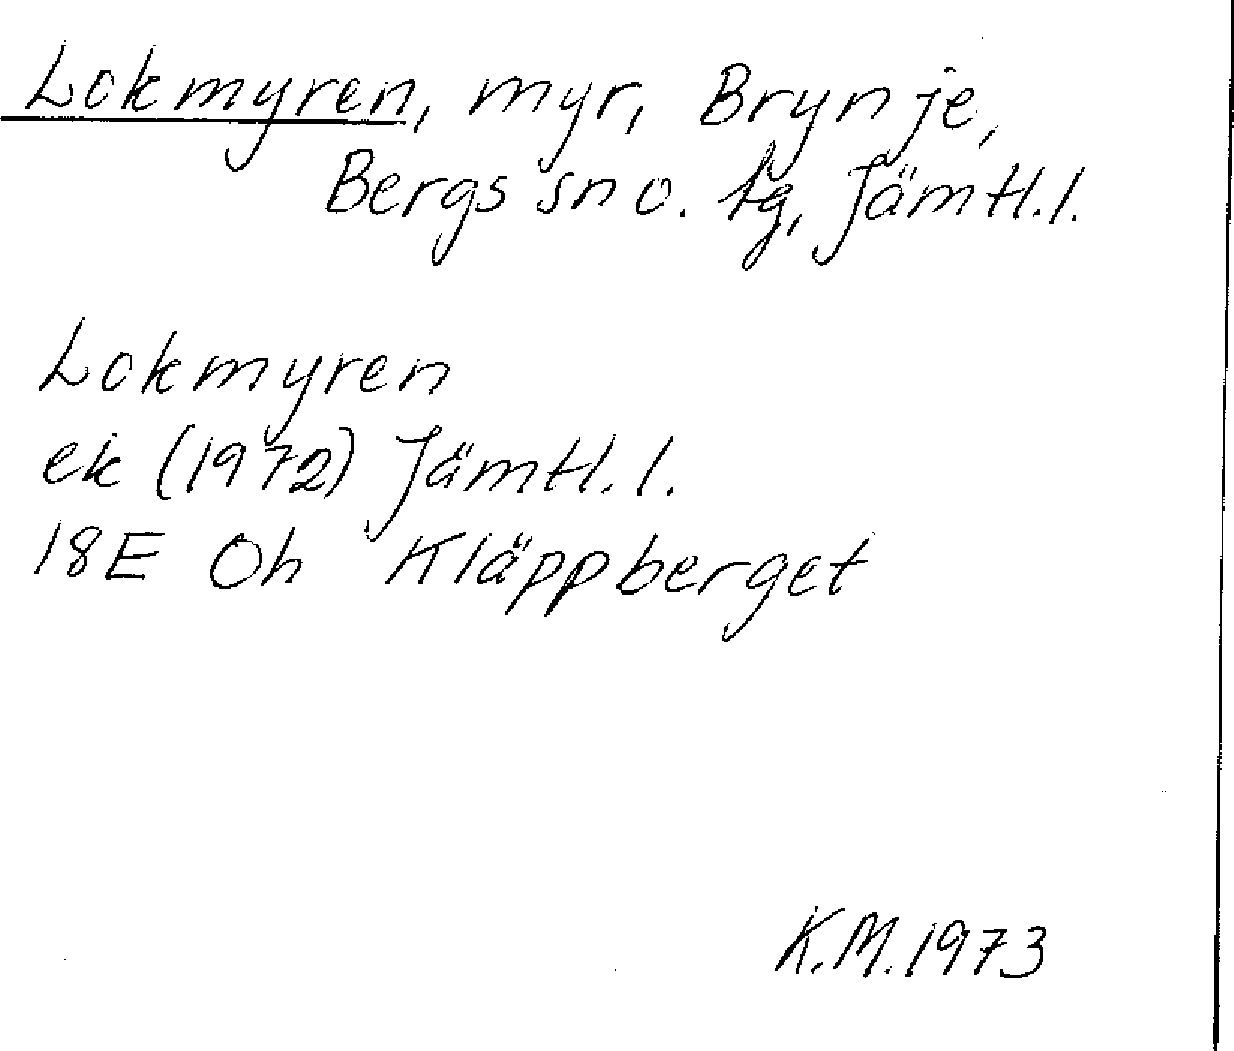 Lokmyren, myr, Brynje,
Bergs sn o. tg, Jämtl.l.
Lokmyren
ek (1972) Jämtl.l.
18E 0h Kläppberget
K.M. 1973